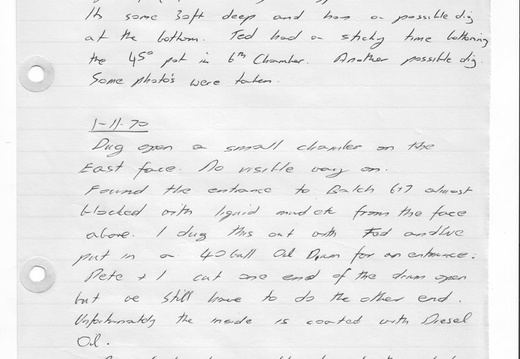 It some 30ft deep and has a possible dig
at the bottom. Ted had a sticky time bottoming
the 45° pot in 6th Chamber. Another possible dig.
Some photo's were taken.
1-11-70
Dug open a small chamber on the
East face. No visible way on.
Found the entrance to Balch almost
blocked with liquid mud etc from the face
above. I dug this out with Ted and we
put in a 40 gall Oil Drum for an entrance.
Pete + I cut one end of the drum open
but we still have to do the other end.
Unfortunately the inside is coated with Diesel
Oil.